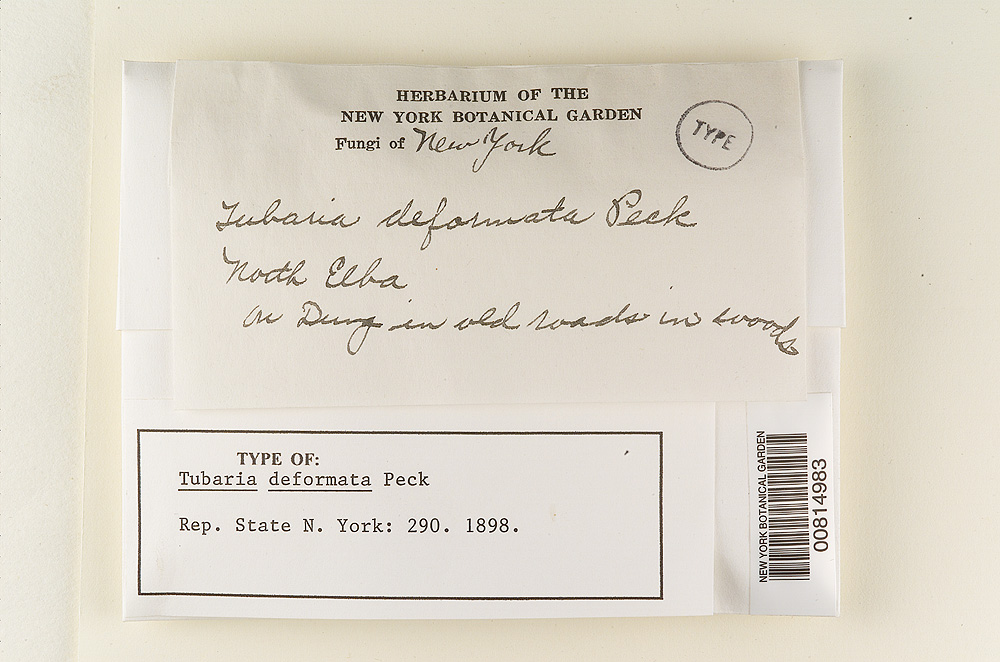 HERBARIUM OF THE
NEW YORK BOTANICAL GARDEN
Fungi of New York
TYPE
Tubaria deformata Peck
North Elba
on Dung in old roads in woods
TYPE OF:
Tubaria deformata Peck
Rep. State N. York: 290. 1898.
NEW YORK BOTANICAL GARDEN
00814983